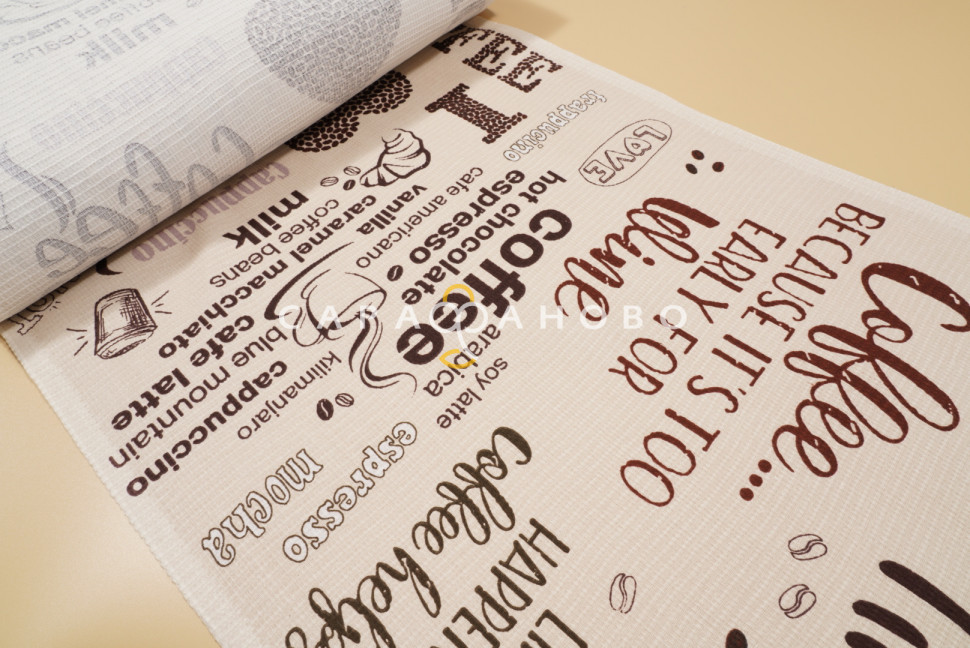 milk
cappuccino
milk
coffee beans
caramel macchiato
vanilla
cafe americano
espresso
hot chocolate
coffee
cafe latte
blue mountain
cappuccino
kilimanjaro
arabica
soy latte
frappucino
LOVE
Coffee...
BECAUSE IT'S TOO
EARLY FOR
wine
espresso
mocha
Coffee helps
CARAMAHOBO